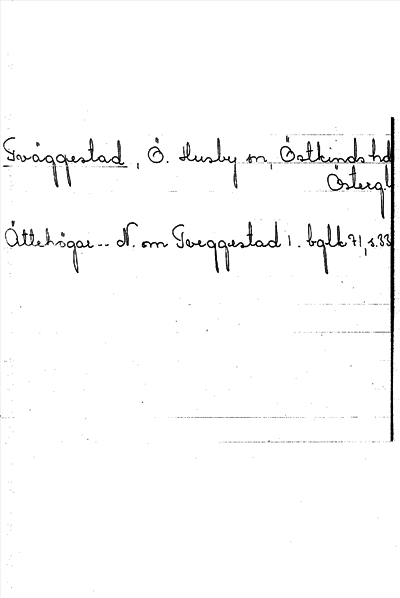 Tväggestad, Ö. Husby sn, Östkinds hd
Österg.
Ättehögar -- N. om Tveggestad 1. bglk 71, s. 33